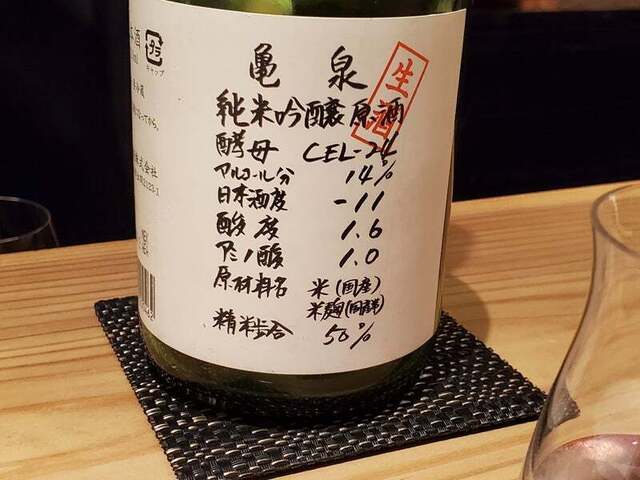 亀泉
生酒
純米吟醸原酒
酵母 CEL-24
アルコール分 14%
日本酒度 -11
酸度 1.6
アミノ酸 1.0
原材料名 米(国産)
米麹(国産米)
精米歩合 50%
プラ
キャップ
株式会社